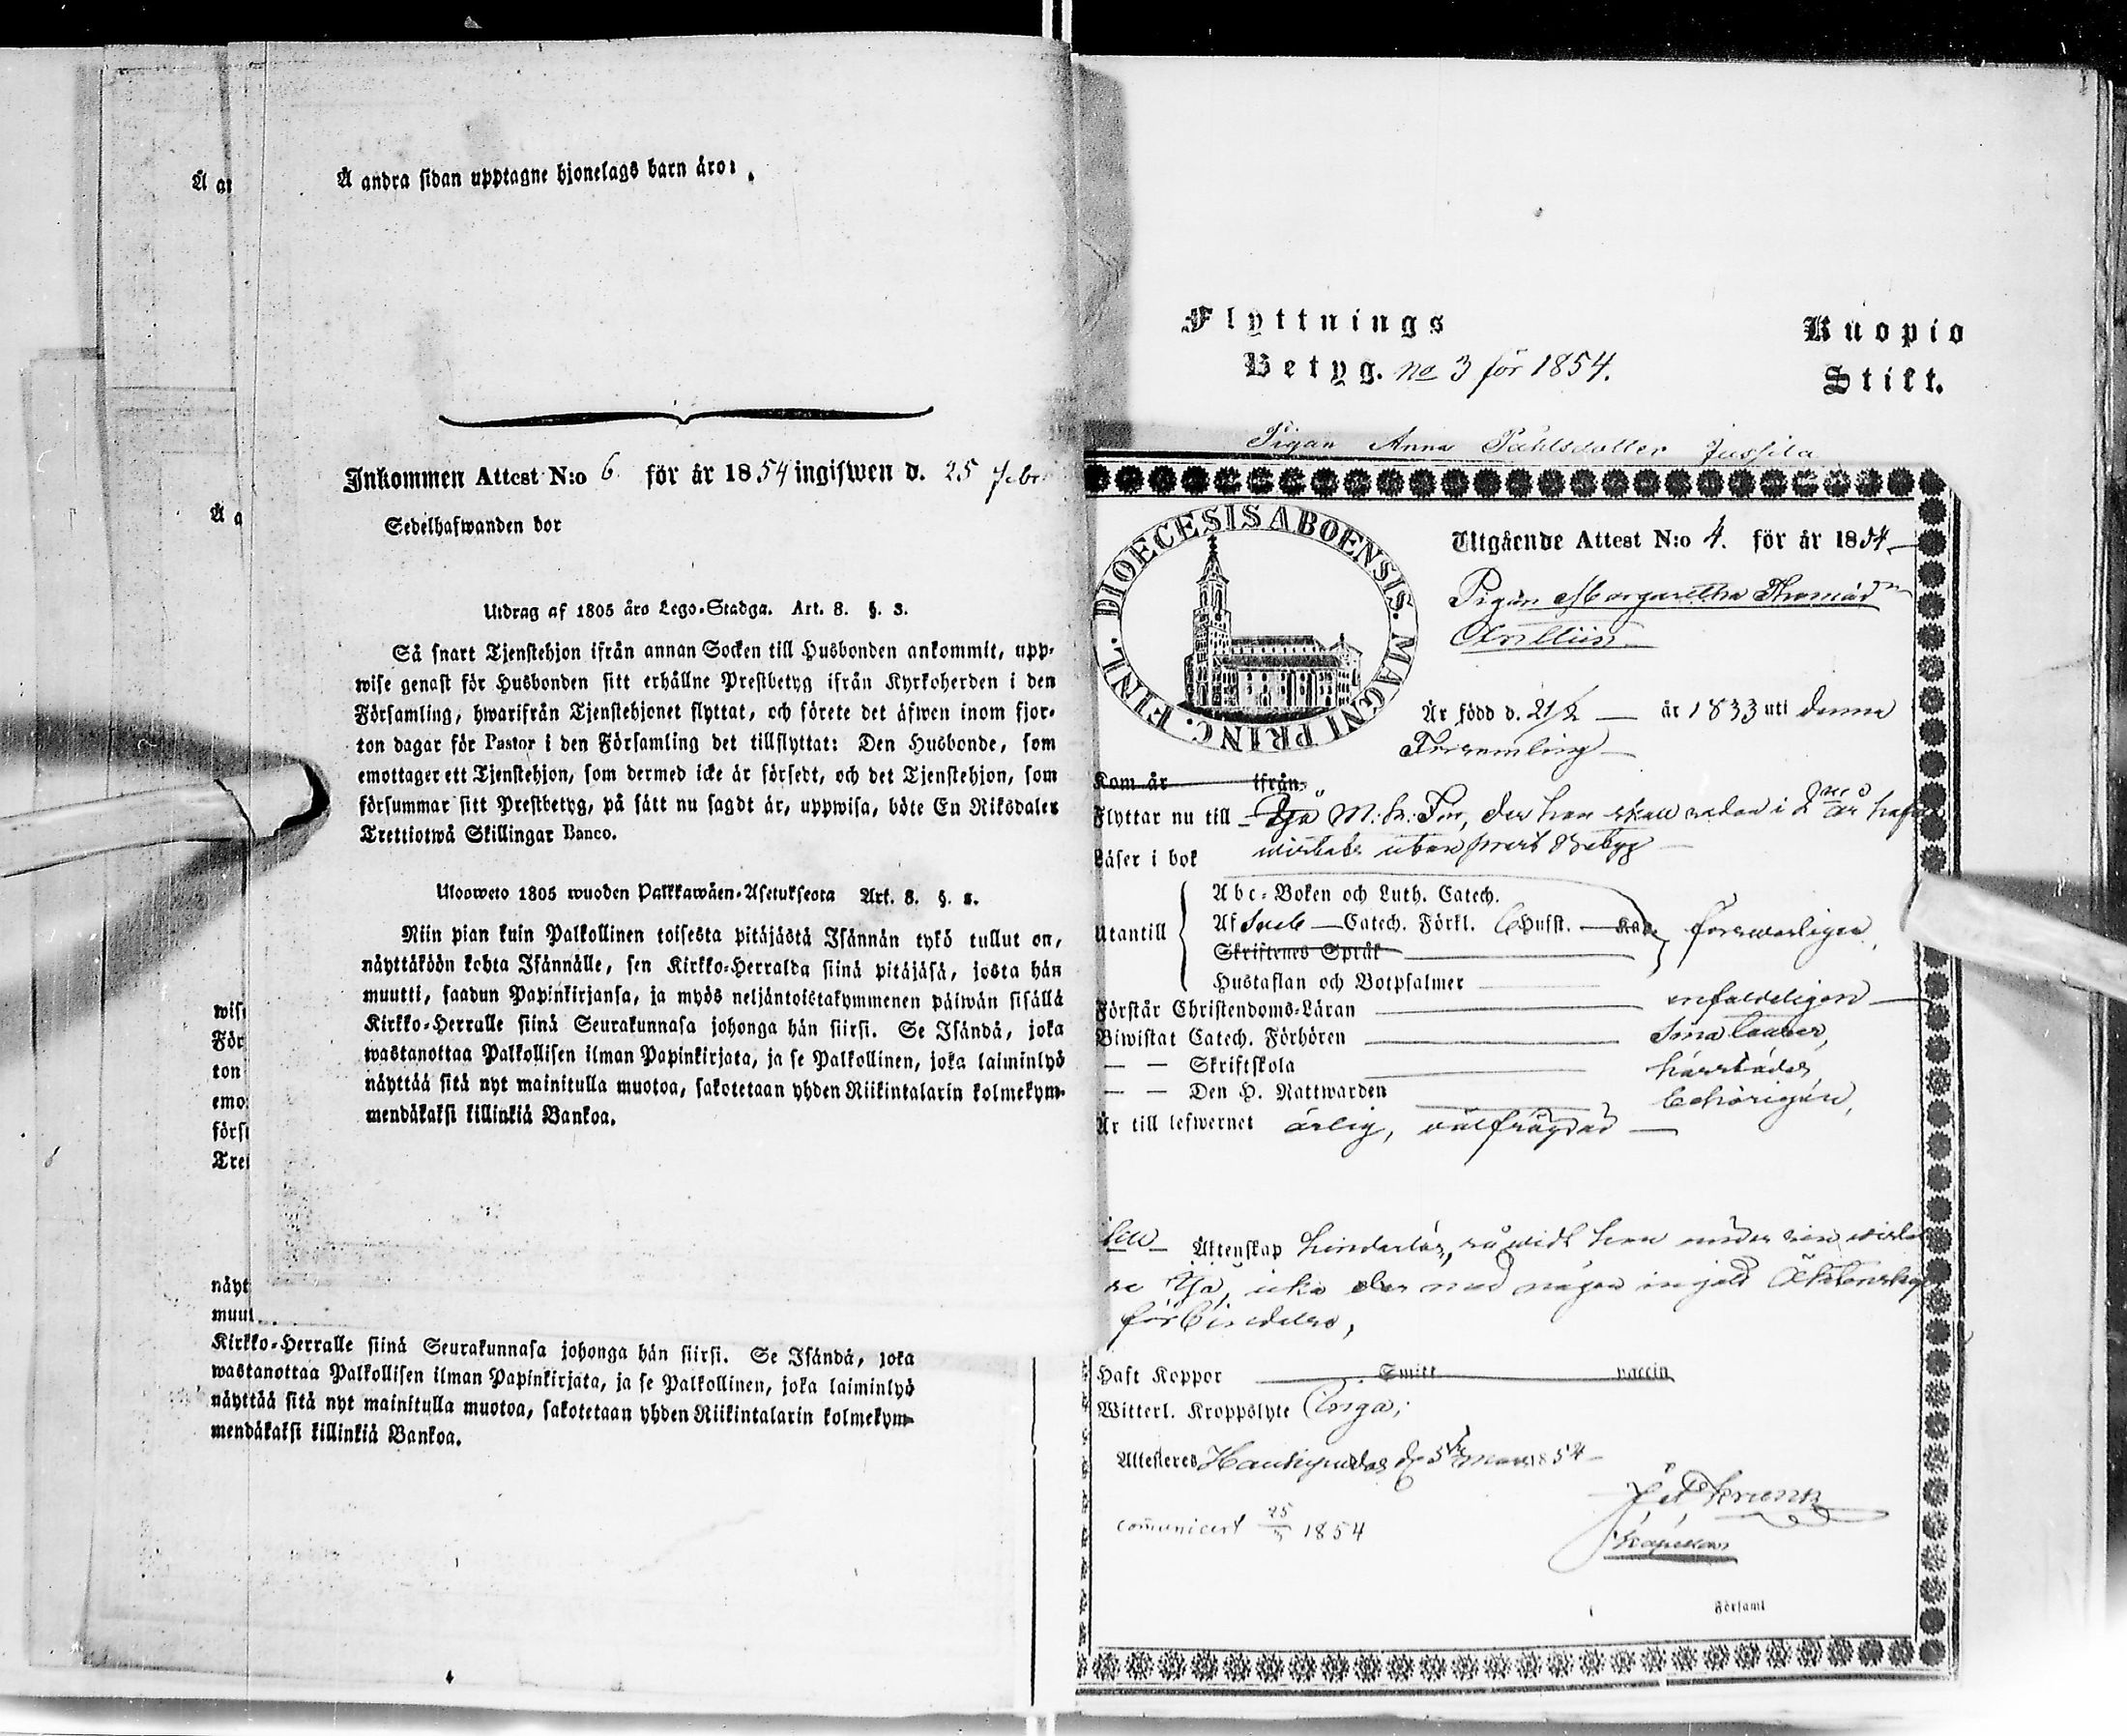 Å an
Å andra sidan upptagne hjonelags barn äro:
Inkommen Attest N:o 6. för år 1854 ingifwen d. 25 Febr
Sedelhafwanden bor
Å a
Utdrag af 1805 års Lego-Stadga. Art. 8. §. 3.
Så snart Tjenstehjon ifrån annan Socken till Husbonden ankommit, upp-
wise genast för Husbonden sitt erhållne Prestbetyg ifrån Kyrkoherden i den
Församling, hwarifrån Tjenstehjonet flyttat, och förete det äfwen inom fjor-
ton dagar för Pastor i den Församling det tillflyttat: Den Husbonde, som
emottager ett Tjenstehjon, som dermed icke är försedt, och det Tjenstehjon, som
försummar sitt Prestbetyg, på sätt nu sagdt är, uppwisa, böte En Riksdaler
Trettiotwå Skillingar Banco.
Uloswето 1805 wuoden Palkkawäen-Asetuksesta Art. 8. §. 3.
Niin pian kuin Palkollinen toisesta pitäjästä Isännän tykö tullut on,
näyttäköön kohta Isännälle, sen Kirkko-Herralda siinä pitäjäsä, josta hän
muutti, saadun Papinkirjansa, ja myös neljäntoistakymmenen päiwän sisällä
Kirkko-Herralle siinä Seurakunnasa johonga hän siirsi. Se Isändä, joka
wastanottaa Palkollisen ilman Papinkirjata, ja se Palkollinen, joka laiminlyö
näyttää sitä nyt mainitulla muotoa, sakotetaan yhden Riikintalarin kolmekym-
mendäkaksi killinkiä Bankoa.
wise
För
ton
emo
förs
Tre
näyt
muu
Kirkko-Herralle siinä Seurakunnasa johonga hän siirsi. Se Isändä, joka
wastanottaa Palkollisen ilman Papinkirjata, ja se Palkollinen, joka laiminlyö
näyttää sitä nyt mainitulla muotoa, sakotetaan yhden Riikintalarin kolmekym-
mendäkaksi killinkiä Bankoa.
Flyttnings
Betyg. No 3 för 1854.
Kuopio
Stift.
Pigan Anna Påhlsdotter Jussila
DIOECESIS ABOENSIS. MAGNI PRINC. FINL.
Utgående Attest N:o 4. för år 1854
Pigan Margaretha Thomäd
Är född d. 21/2 år 1833 uti denna
Församling
Kom år ifrån
Flyttar nu till Ijo M. K. För, der hon skall redan i 2 år hafva
Läser i bok wistats utan prest Betyg
Utantill
Abc-Boken och Luth. Catech.
Af Sveb Catech. Förkl.
Skriftenes Språk
Hustaflan och Botpsalmer
försvarligen,
Förstår Christendoms-Läran enfaldeligen
Biwistat Catech. Förhören
— — Skriftskola
— — Den H. Nattwarden behörigen,
Är till lefwernet ärlig, välfrägdad
till Äktenskap hinderlös, så vidt hon under sin wistel
se i Ijo, icke der med någon ingått Äktenskaps
förbindelse,
Haft Koppor Smitt vaccin
Witterl. Kroppslyte Inga;
Attesteres Haukipudas d. 5 Mars 1854
comunicert 25/3 1854
Kapellan
Församl